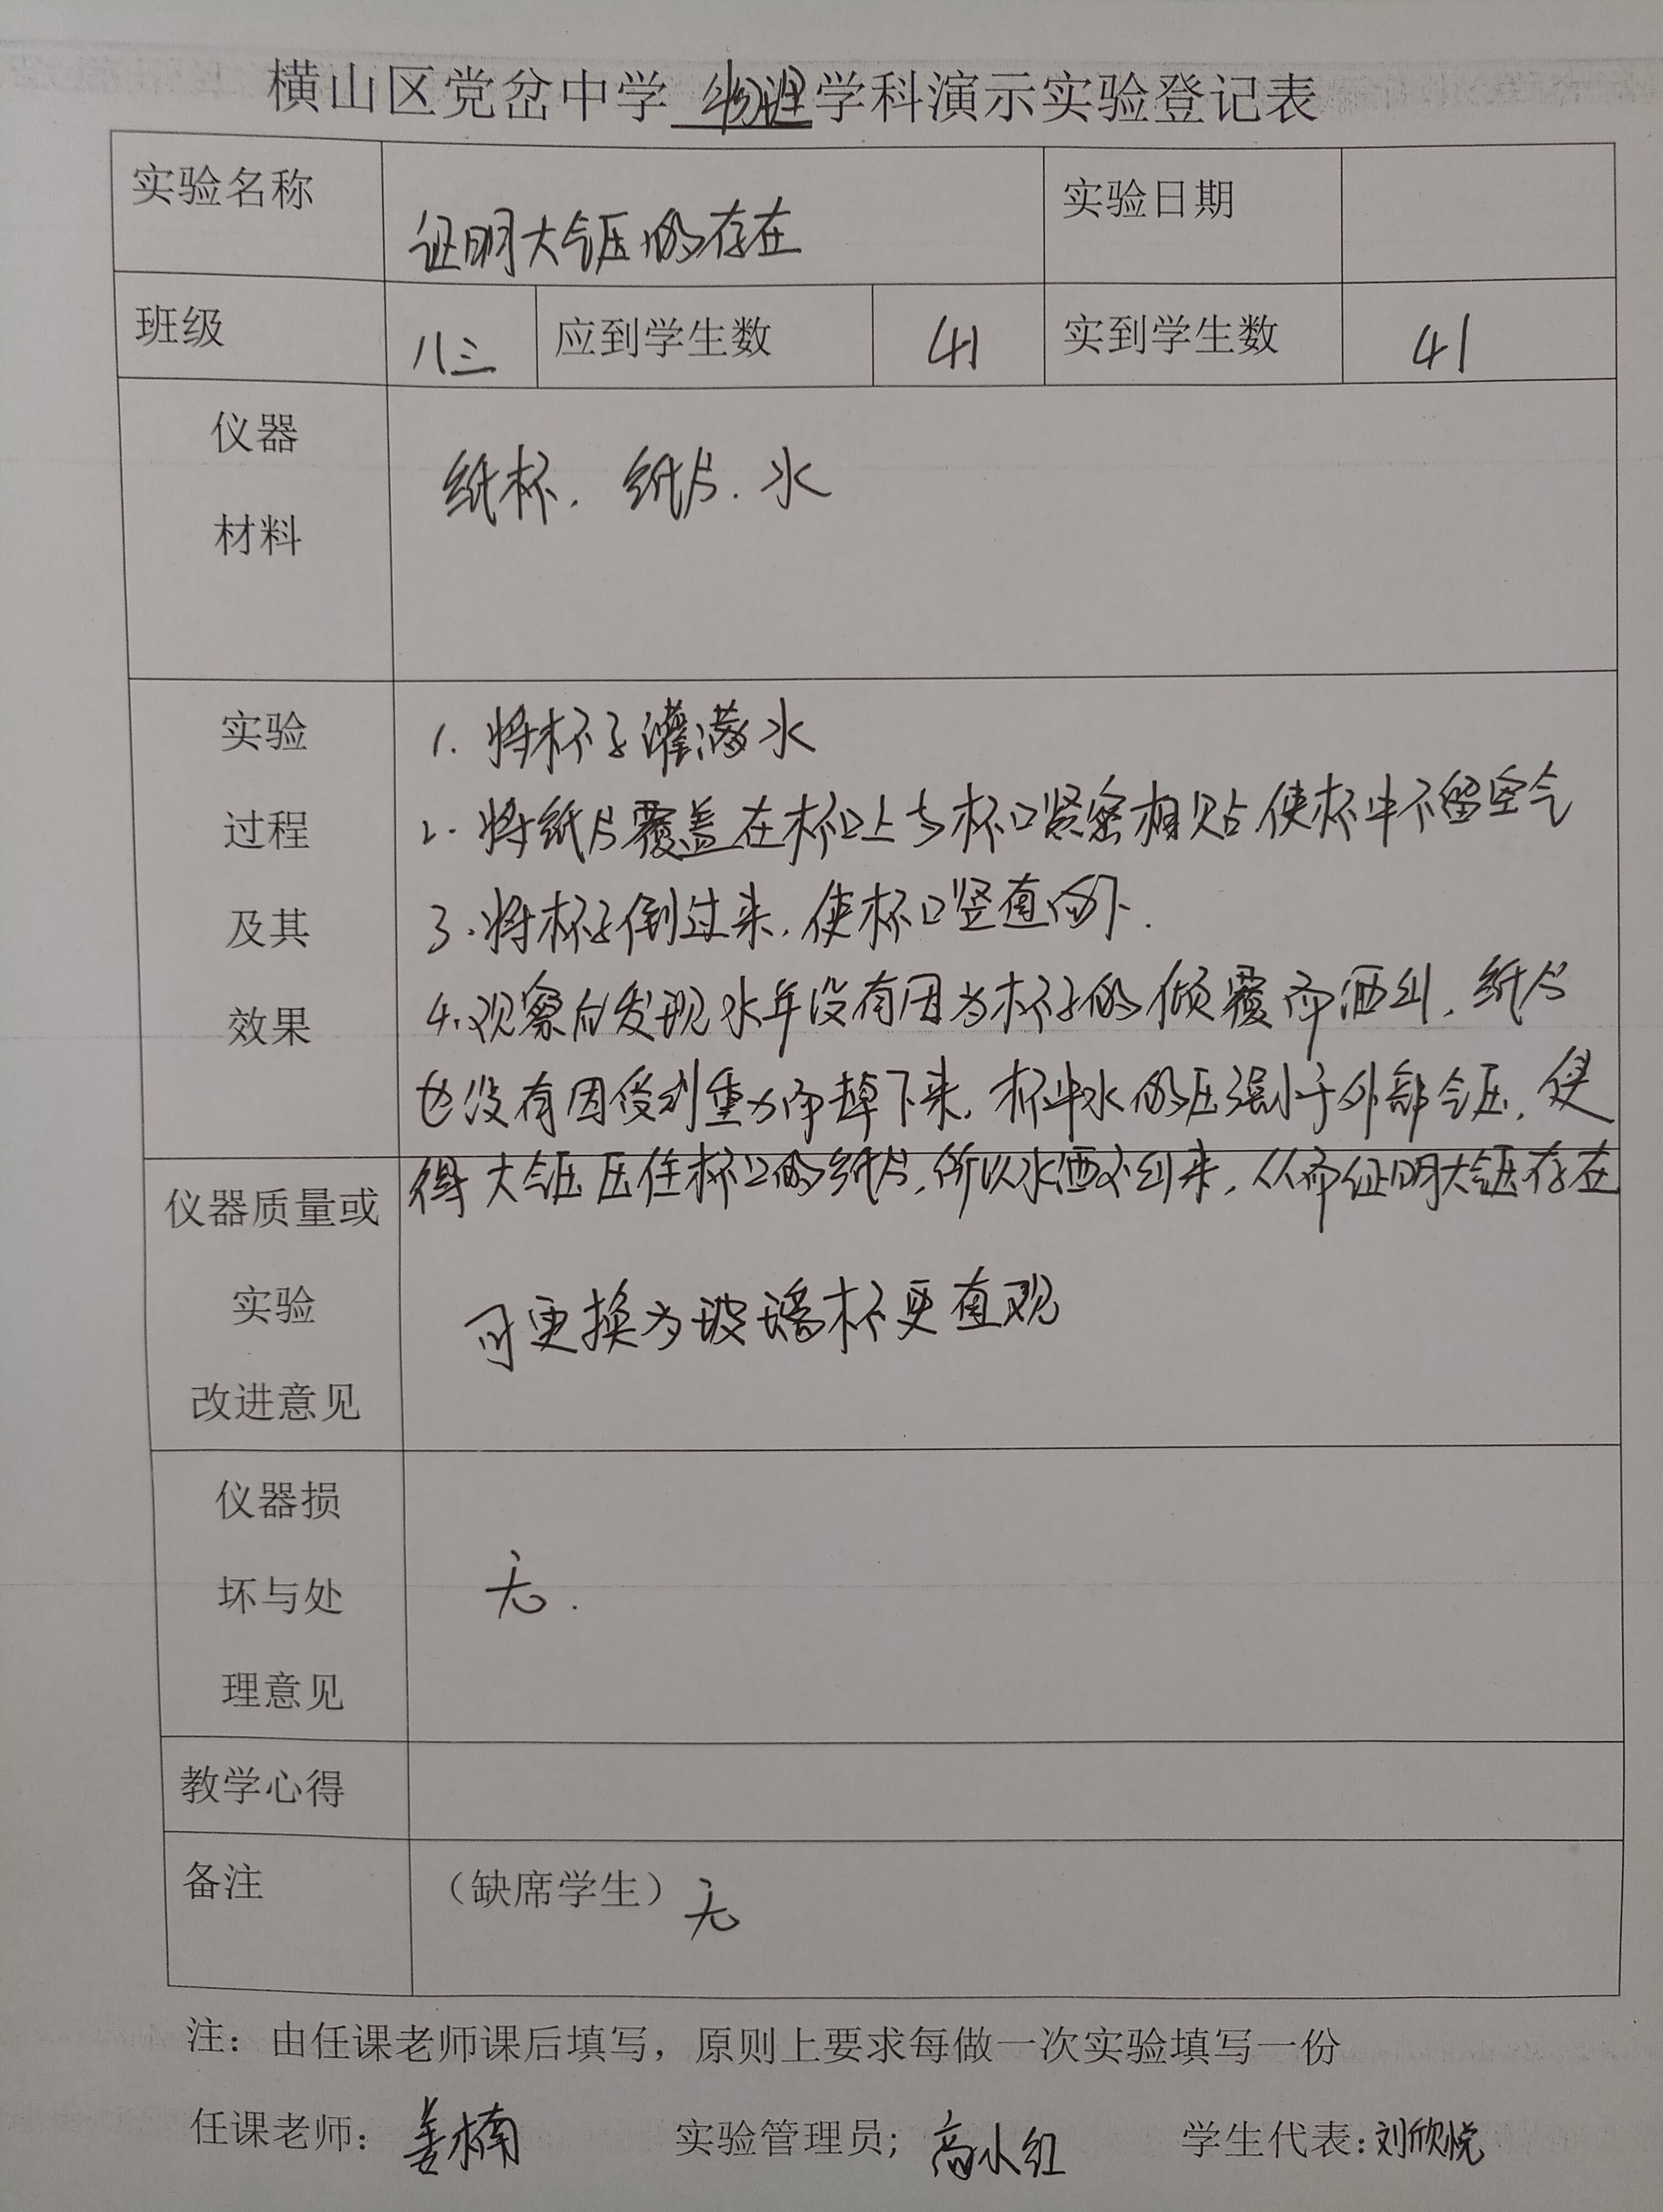 横山区党岔中学 物理 学科演示实验登记表
实验名称 证明大气压的存在 实验日期
班级 八三 应到学生数 41 实到学生数 41
仪器
材料
纸杯. 纸片. 水
实验
过程
及其
效果
1. 将杯子灌满水
2. 将纸片覆盖在杯口上与杯口紧密相贴,使杯中不留空气
3. 将杯子倒过来,使杯口竖直向下.
4. 观察后发现水并没有因为杯子的倾覆而洒出,纸片
也没有因受到重力而掉下来,杯中水的压强小于外部气压,使
得大气压压住杯口的纸片,所以水洒不出来,从而证明大气压存在
仪器质量或
实验
改进意见
可更换为玻璃杯更直观
仪器损
坏与处
理意见
无.
教学心得
备注 (缺席学生) 无
注：由任课老师课后填写，原则上要求每做一次实验填写一份
任课老师：姜楠 实验管理员；高小红 学生代表：刘欣悦